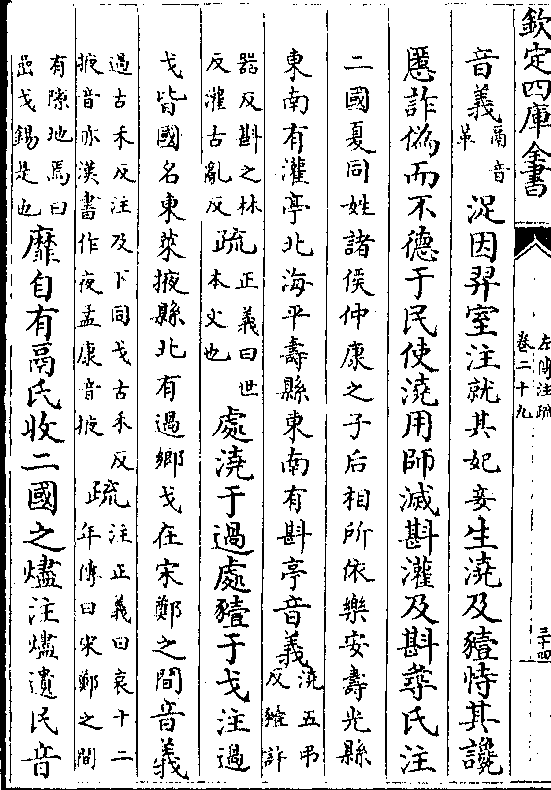 欽定四庫全書
左傳注疏
卷二十九
三十四
音義鬲音
革
浞因羿室注就其妃妾生澆及豷恃其讒
慝詐偽而不德于民使澆用師滅斟灌及斟尋氏注
二國夏同姓諸侯仲康之子后相所依樂安壽光縣
東南有灌亭北海平壽縣東南有斟亭音義澆五弔
反豷許
器反斟之林
反灌古亂反
疏正義曰世
本文也
處澆于過處豷于戈注過
戈皆國名東萊掖縣北有過鄉戈在宋鄭之間音義
過古禾反注及下同戈古禾反
掖音亦漢書作夜孟康音掖
疏注正義曰哀十二
年傳曰宋鄭之間
有隙地焉曰
嵒戈錫是也
靡自有鬲氏收二國之燼注燼遺民音